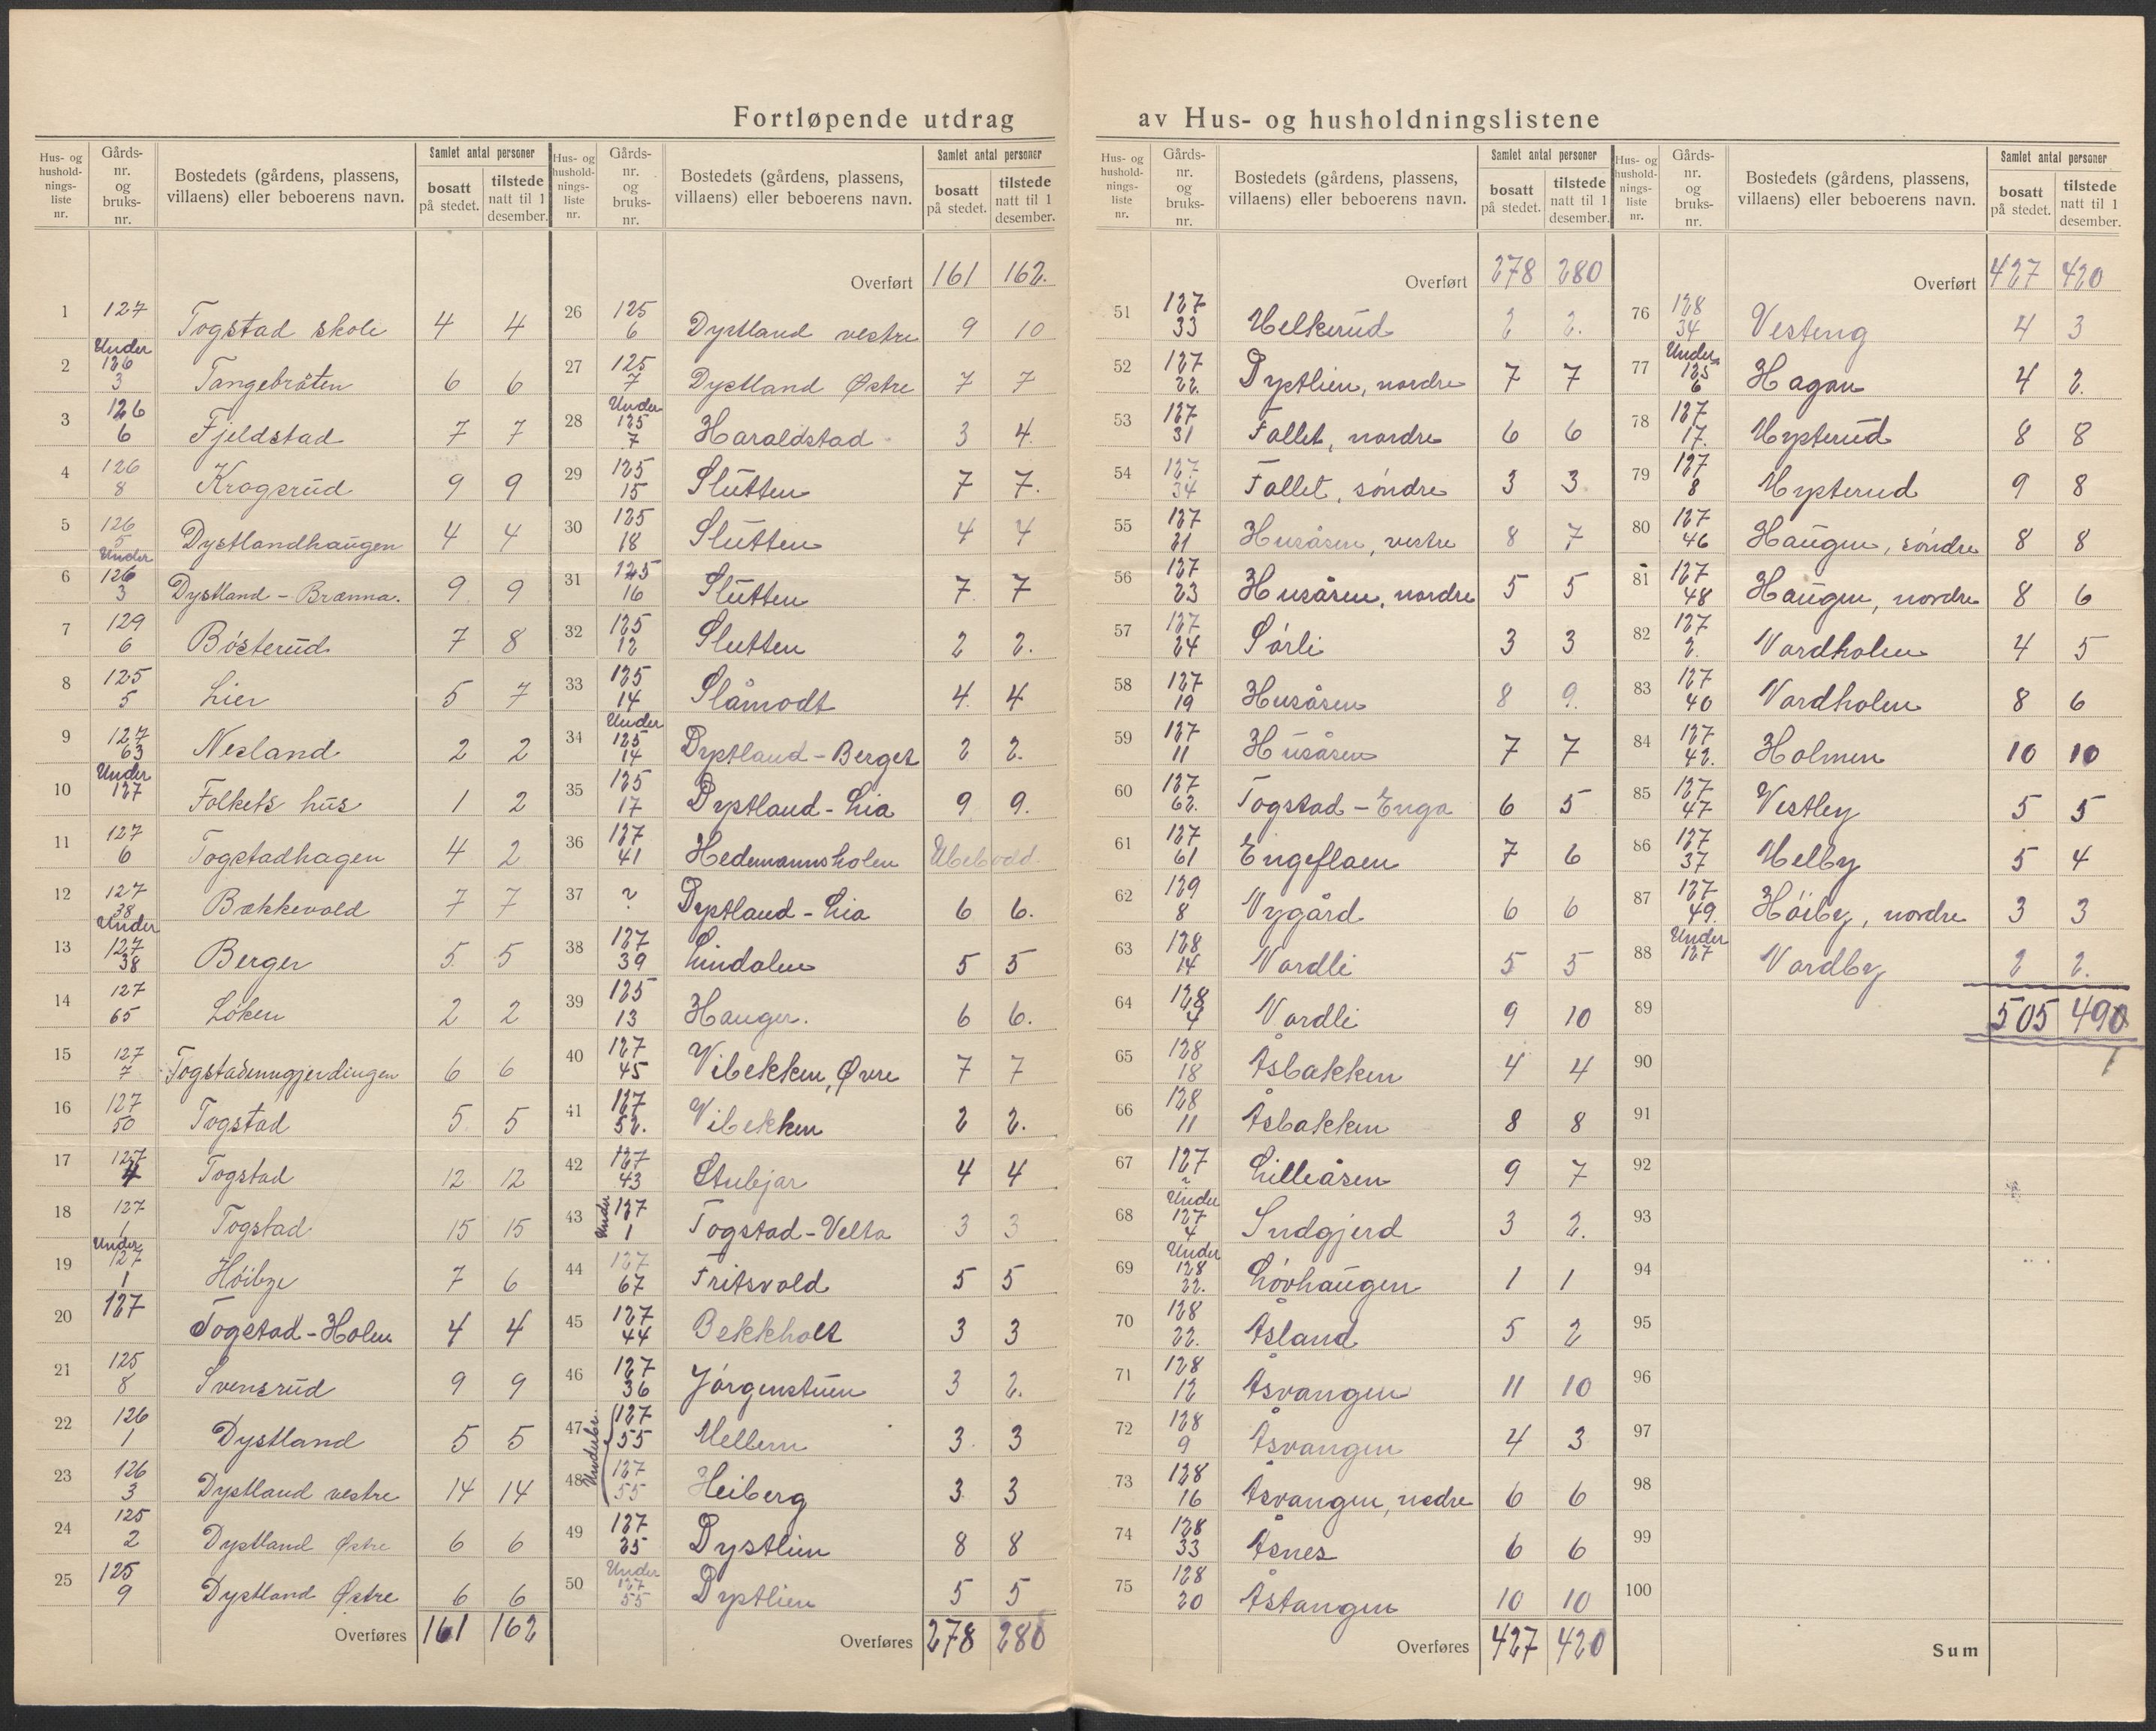 Fortløpende utdrag av Hus- og husholdningslistene
Hus- og husholdnings-liste nr. Gårds-nr. og bruks-nr. Bostedets (gårdens, plassens, villaens) eller beboerens navn. Samlet antal personer bosatt på stedet. tilstede natt til 1 desember.
1 127 Togstad skole 4 4
2 Under 126 3 Tangebråten 6 6
3 126 6 Fjeldstad 7 7
4 126 8 Krogsrud 9 9
5 126 5 Dystlandhaugen 4 4
6 Under 126 3 Dystland - Brænna. 9 9
7 129 6 Bøsterud 7 8
8 125 5 Lier 5 7
9 127 63 Nesland 2 2
10 Under 127 Folkets hus 1 2
11 127 6 Togstadhagen 4 2
12 127 38 Bækkevold 7 7
13 Under 127 38 Berger 5 5
14 127 65 Løken 2 2
15 127 7 6 6
16 127 50 Togstad 5 5
17 127 4 Togstad 12 12
18 127 1 Togstad 15 15
19 Under 127 1 Høiby 7 6
20 127 Togstad - Holen 4 4
21 125 8 Svensrud 9 9
22 126 1 Dystland 5 5
23 126 3 Dystland vestre 14 14
24 125 2 Dystland Østre 6 6
25 125 9 Dystland Østre 6 6
Overføres 161 162
Hus- og husholdnings-liste nr. Gårds-nr. og bruks-nr. Bostedets (gårdens, plassens, villaens) eller beboerens navn. Samlet antal personer bosatt på stedet. tilstede natt til 1 desember.
Overført 161 162.
26 125 6 Dystland vestre 9 10
27 125 7 Dystland Østre 7 7
28 Under 125 7 Haraldstad 3 4.
29 125 15 Slutten 7 7.
30 125 18 Slutten 4 4
31 125 16 Slutten 7. 7
32 125 12 Slutten 2 2.
33 125 14 Slåmodt 4. 4
34 Under 125 14 Dystland - Berget 2 2.
35 125 17 Dystland - Lia 9 9.
36 127 41 Hedemannsholen Ubebodd.
37 ? Dystland - Lia 6 6.
38 127 39 Lindalen 5 5
39 125 13 Hauger. 6 6.
40 127 45 Vibekken, Øvre 7 7
41 127 52. Vibekken 2 2.
42 127 43 Stubjar 4 4
43 Under 127 1 Togstad - Velta 3 3
44 127 67 Fritsvold 5 5
45 127 44 Bekkholt 3 3
46 127 36 Jørgenstuen 3 2.
47 127 55 Mellem 3. 3
48 127 55 Heiberg 3 3
49 127 25 Dystlien 8 8
50 Under 127 55 Dystlien 5 5
Overføres 278 280
Hus- og husholdnings-liste nr. Gårds-nr. og bruks-nr. Bostedets (gårdens, plassens, villaens) eller beboerens navn. Samlet antal personer bosatt på stedet. tilstede natt til 1 desember.
Overført 278 280
51 127 33 Melkerud 2 2.
52 127 22. Dystlien, nordre 7 7
53 127 31 Fallet, nordre 6 6
54 127 34 Fallet, søndre 3 3
55 127 21 Husåsen, vestre 8 7
56 127 23 Husåsen, nordre 5 5
57 127 24 Sørli 3 3
58 127 19 Husåsen 8 9.
59 127 11 Husåsen 7 7
60 127 62. Togstad - Enga 6 5
61 127 61 Engeflaen 7 6
62 129 8 Nygård 6 6
63 128 14 Nordli 5 5
64 128 4 Nordli 9 10
65 128 18 Åsbakken 4 4
66 128 11 Åsbakken 8 8
67 127 ? Lilleåsen 9 7
68 Under 127 4 Indgjerd 3 2.
69 Under 128 22. Løvhaugen 1 1
70 128 22. Åsland 5 2
71 128 12 Åsvangen 11 10
72 128 9 Åsvangen 4 3
73 128 16 Åsvangen, nedre 6 6
74 128 33 Åsnes 6 6
75 128 20 Åstangen 10 10
Overføres 427 420
Hus- og husholdnings-liste nr. Gårds-nr. og bruks-nr. Bostedets (gårdens, plassens, villaens) eller beboerens navn. Samlet antal personer bosatt på stedet. tilstede natt til 1 desember.
Overført 427 420
76 128 34 Vesteng 4 3
77 Under 125 6 Hagan 4 2.
78 127 17. Mysterud 8 8
79 127 8 Mysterud 9 8
80 127 46 Haugen, søndre 8 8
81 127 48 Haugen, nordre 8 6
82 127 2. Nordholen 4 5
83 127 40 Nordholen 8 6
84 127 42. Holmen 10 10
85 127 47 Vestley 5 5
86 127 37 Melby 5 4
87 127 49. Høiby, nordre 3 3
88 Under 127 Nordby 2 2.
89 505 490
90
91
92
93
94
95
96
97
98
99
100
Sum